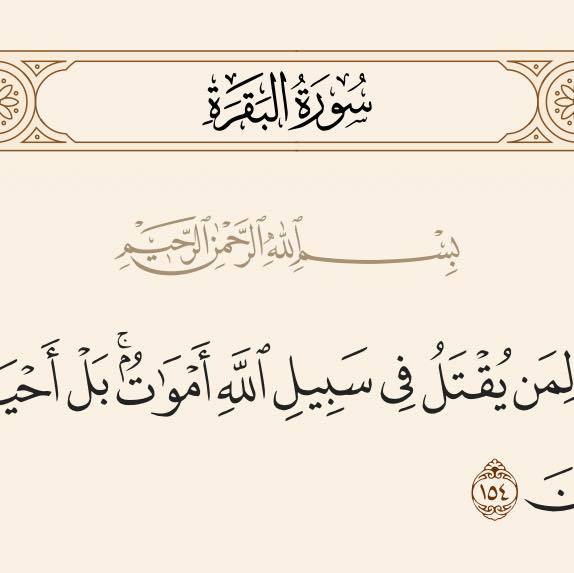 سُورَةُ البَقَرَةِ
بِسْمِ ٱللَّهِ ٱلرَّحْمَٰنِ ٱلرَّحِيمِ
لِمَن يُقْتَلُ فِى سَبِيلِ ٱللَّهِ أَمْوَٰتٌۢ ۚ بَلْ أَحْيَ
نَ ١٥٤